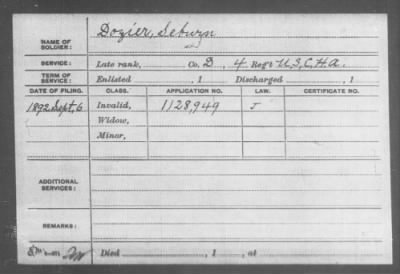 NAME OF SOLDIER: Dozier, Seburn
SERVICE: Late rank, Co. D, 4 Reg't U.S.C.H.A.
TERM OF SERVICE: Enlisted , 1 Discharged , 1
DATE OF FILING. CLASS. APPLICATION NO. LAW. CERTIFICATE NO.
1892 Sept, 6 Invalid, 1128,949 J
Widow,
Minor,
ADDITIONAL SERVICES:
REMARKS:
Died , 1 , at